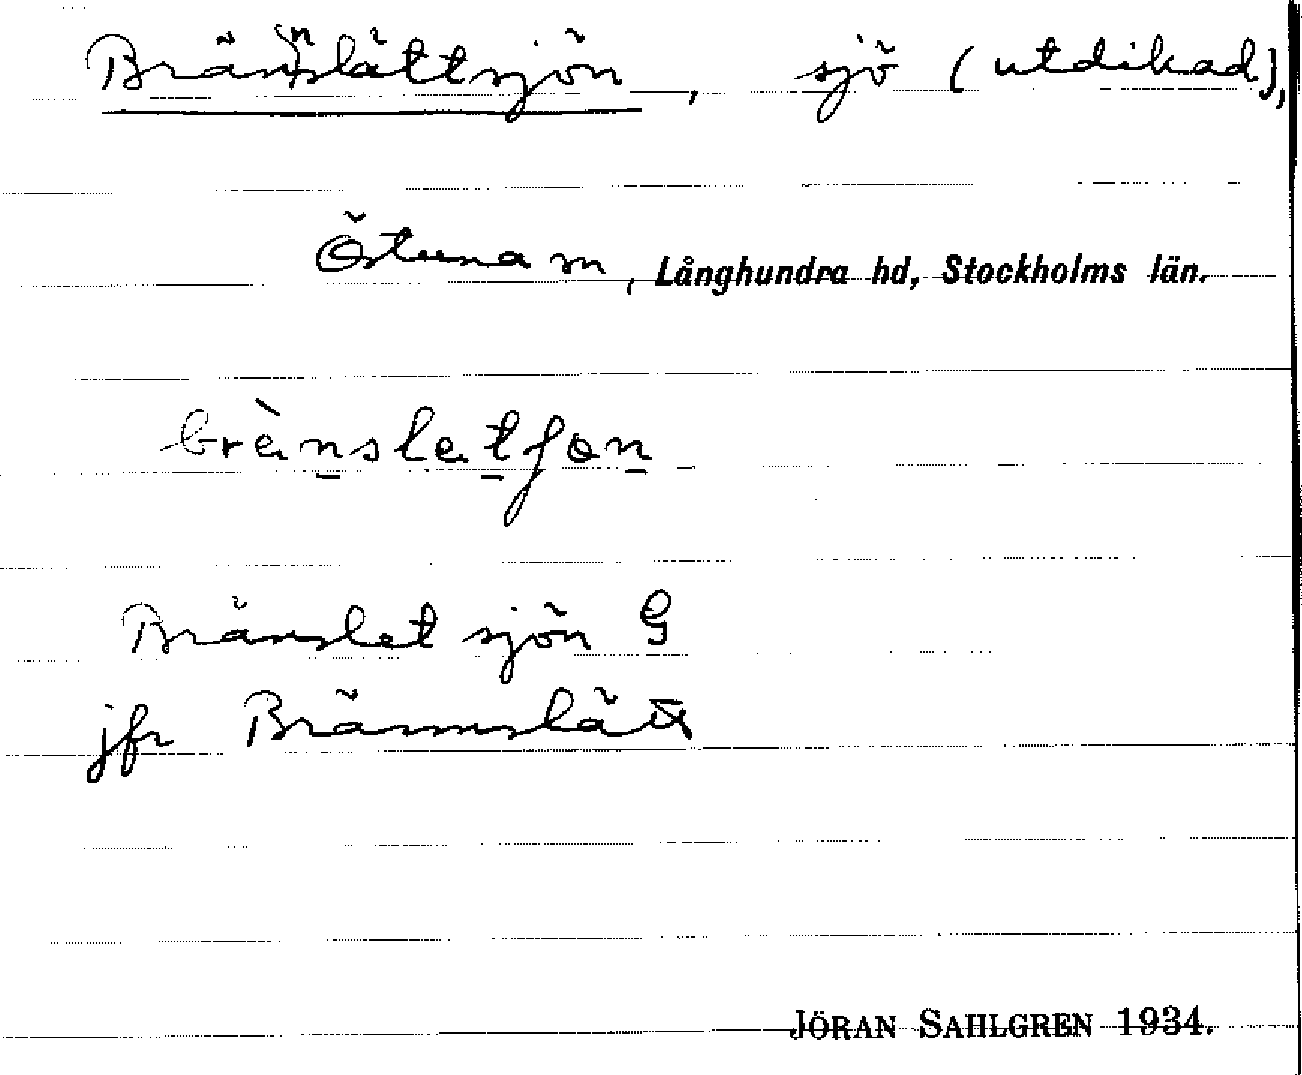 Brännslättsjön, sjö (utdikad),
Östuna sn, Långhundra hd, Stockholms län.
brènslatʃon
Bränslet sjön G
jfr Brännslätt
JÖRAN SAHLGREN 1934.